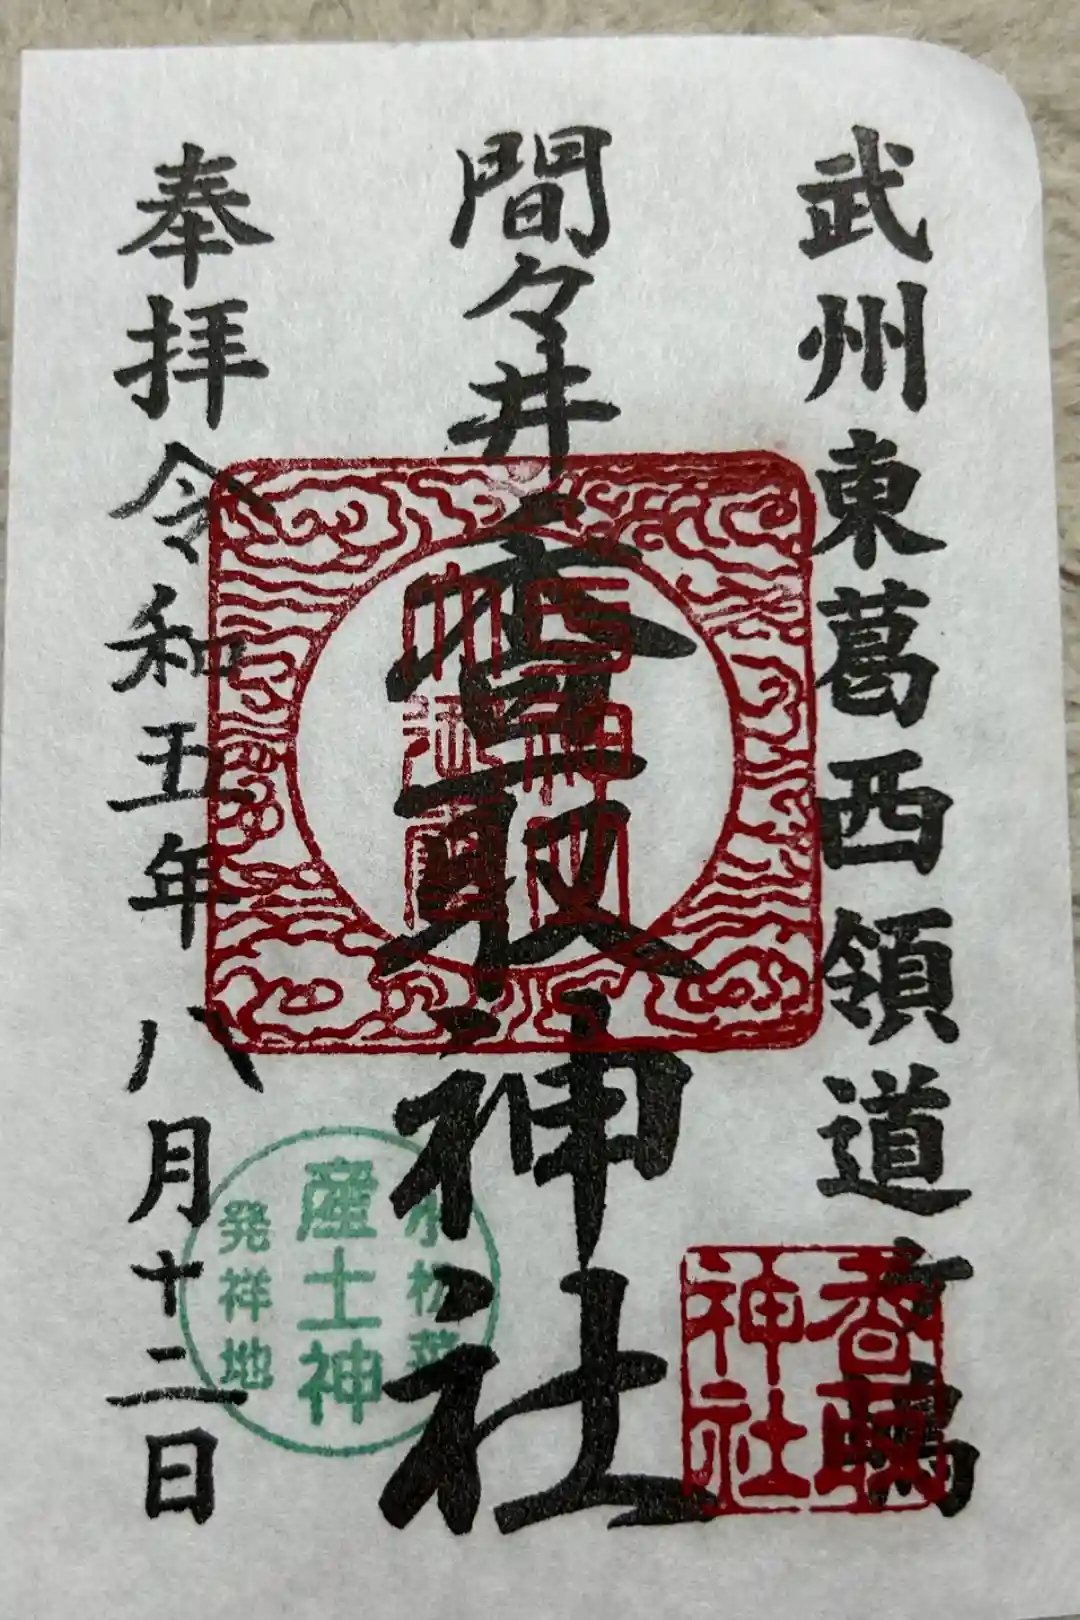 武州東葛西領道
間々井
香取神社
奉拝
令和五年八月十二日
香取
神社
小松菜
産土神
発祥地